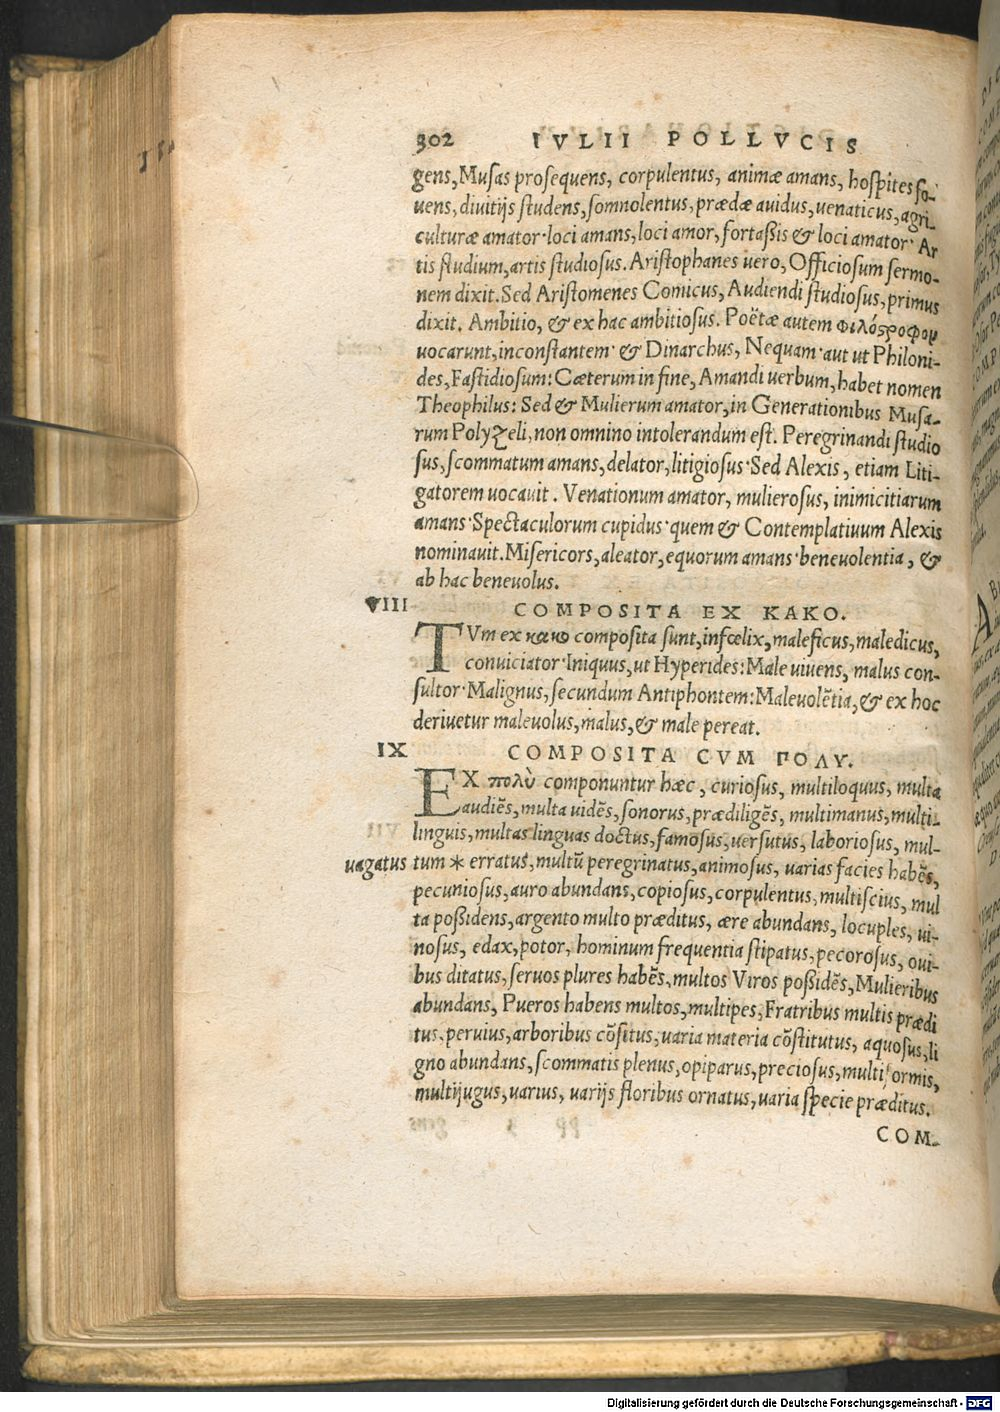 302 IVLII POLLVCIS
gens, Musas prosequens, corpulentus, animæ amans, hospites fo-
uens, diuitijs studens, somnolentus, prædæ auidus, uenaticus, agri-
culturæ amator· loci amans, loci amor, fortaßis & loci amator· Ar
tis studium, artis studiosus. Aristophanes uero, Officiosum sermo-
nem dixit. Sed Aristomenes Comicus, Audiendi studiosus, primus
dixit. Ambitio, & ex hac ambitiosus. Poëtæ autem φιλόϛροφον
uocarunt, inconstantem· & Dinarchus, Nequam· aut ut Philoni-
des, Fastidiosum: Cæterum in fine, Amandi uerbum, habet nomen
Theophilus: Sed & Mulierum amator, in Generationibus Musa-
rum Polyzeli, non omnino intolerandum est. Peregrinandi studio
sus, scommatum amans, delator, litigiosus· Sed Alexis, etiam Liti-
gatorem uocauit. Venationum amator, mulierosus, inimicitiarum
amans· Spectaculorum cupidus· quem & Contemplatiuum Alexis
nominauit. Misericors, aleator, equorum amans· beneuolentia, &
ab hac beneuolus.
VIII COMPOSITA EX KAKO.
TVm ex κακο composita sunt, infœlix, maleficus, maledicus,
conuiciator· Iniquus, ut Hyperides: Male uiuens, malus con-
sultor· Malignus, secundum Antiphontem: Maleuolẽtia, & ex hoc
deriuetur maleuolus, malus, & male pereat.
IX COMPOSITA CVM ΠΟΛΥ.
EX πολὺ componuntur hæc, curiosus, multiloquus, multa
audiẽs, multa uidẽs, sonorus, prædiligẽs, multimanus, multi-
linguis, multas linguas doctus, famosus, uersutus, laboriosus, mul-
uagatus tum * erratus, multũ peregrinatus, animosus, uarias facies habẽs,
pecuniosus, auro abundans, copiosus, corpulentus, multiscius, mul
ta poßidens, argento multo præditus, ære abundans, locuples, ui-
nosus, edax, potor, hominum frequentia stipatus, pecorosus, oui-
bus ditatus, seruos plures habẽs, multos Viros poßidẽs, Mulieribus
abundans, Pueros habens multos, multipes, Fratribus multis prædi
tus, peruius, arboribus cõsitus, uaria materia cõstitutus, aquosus, li
gno abundans, scommatis plenus, opiparus, preciosus, multiformis,
multijugus, uarius, uarijs floribus ornatus, uaria specie præditus.
COM-
Digitalisierung gefördert durch die Deutsche Forschungsgemeinschaft - DFG